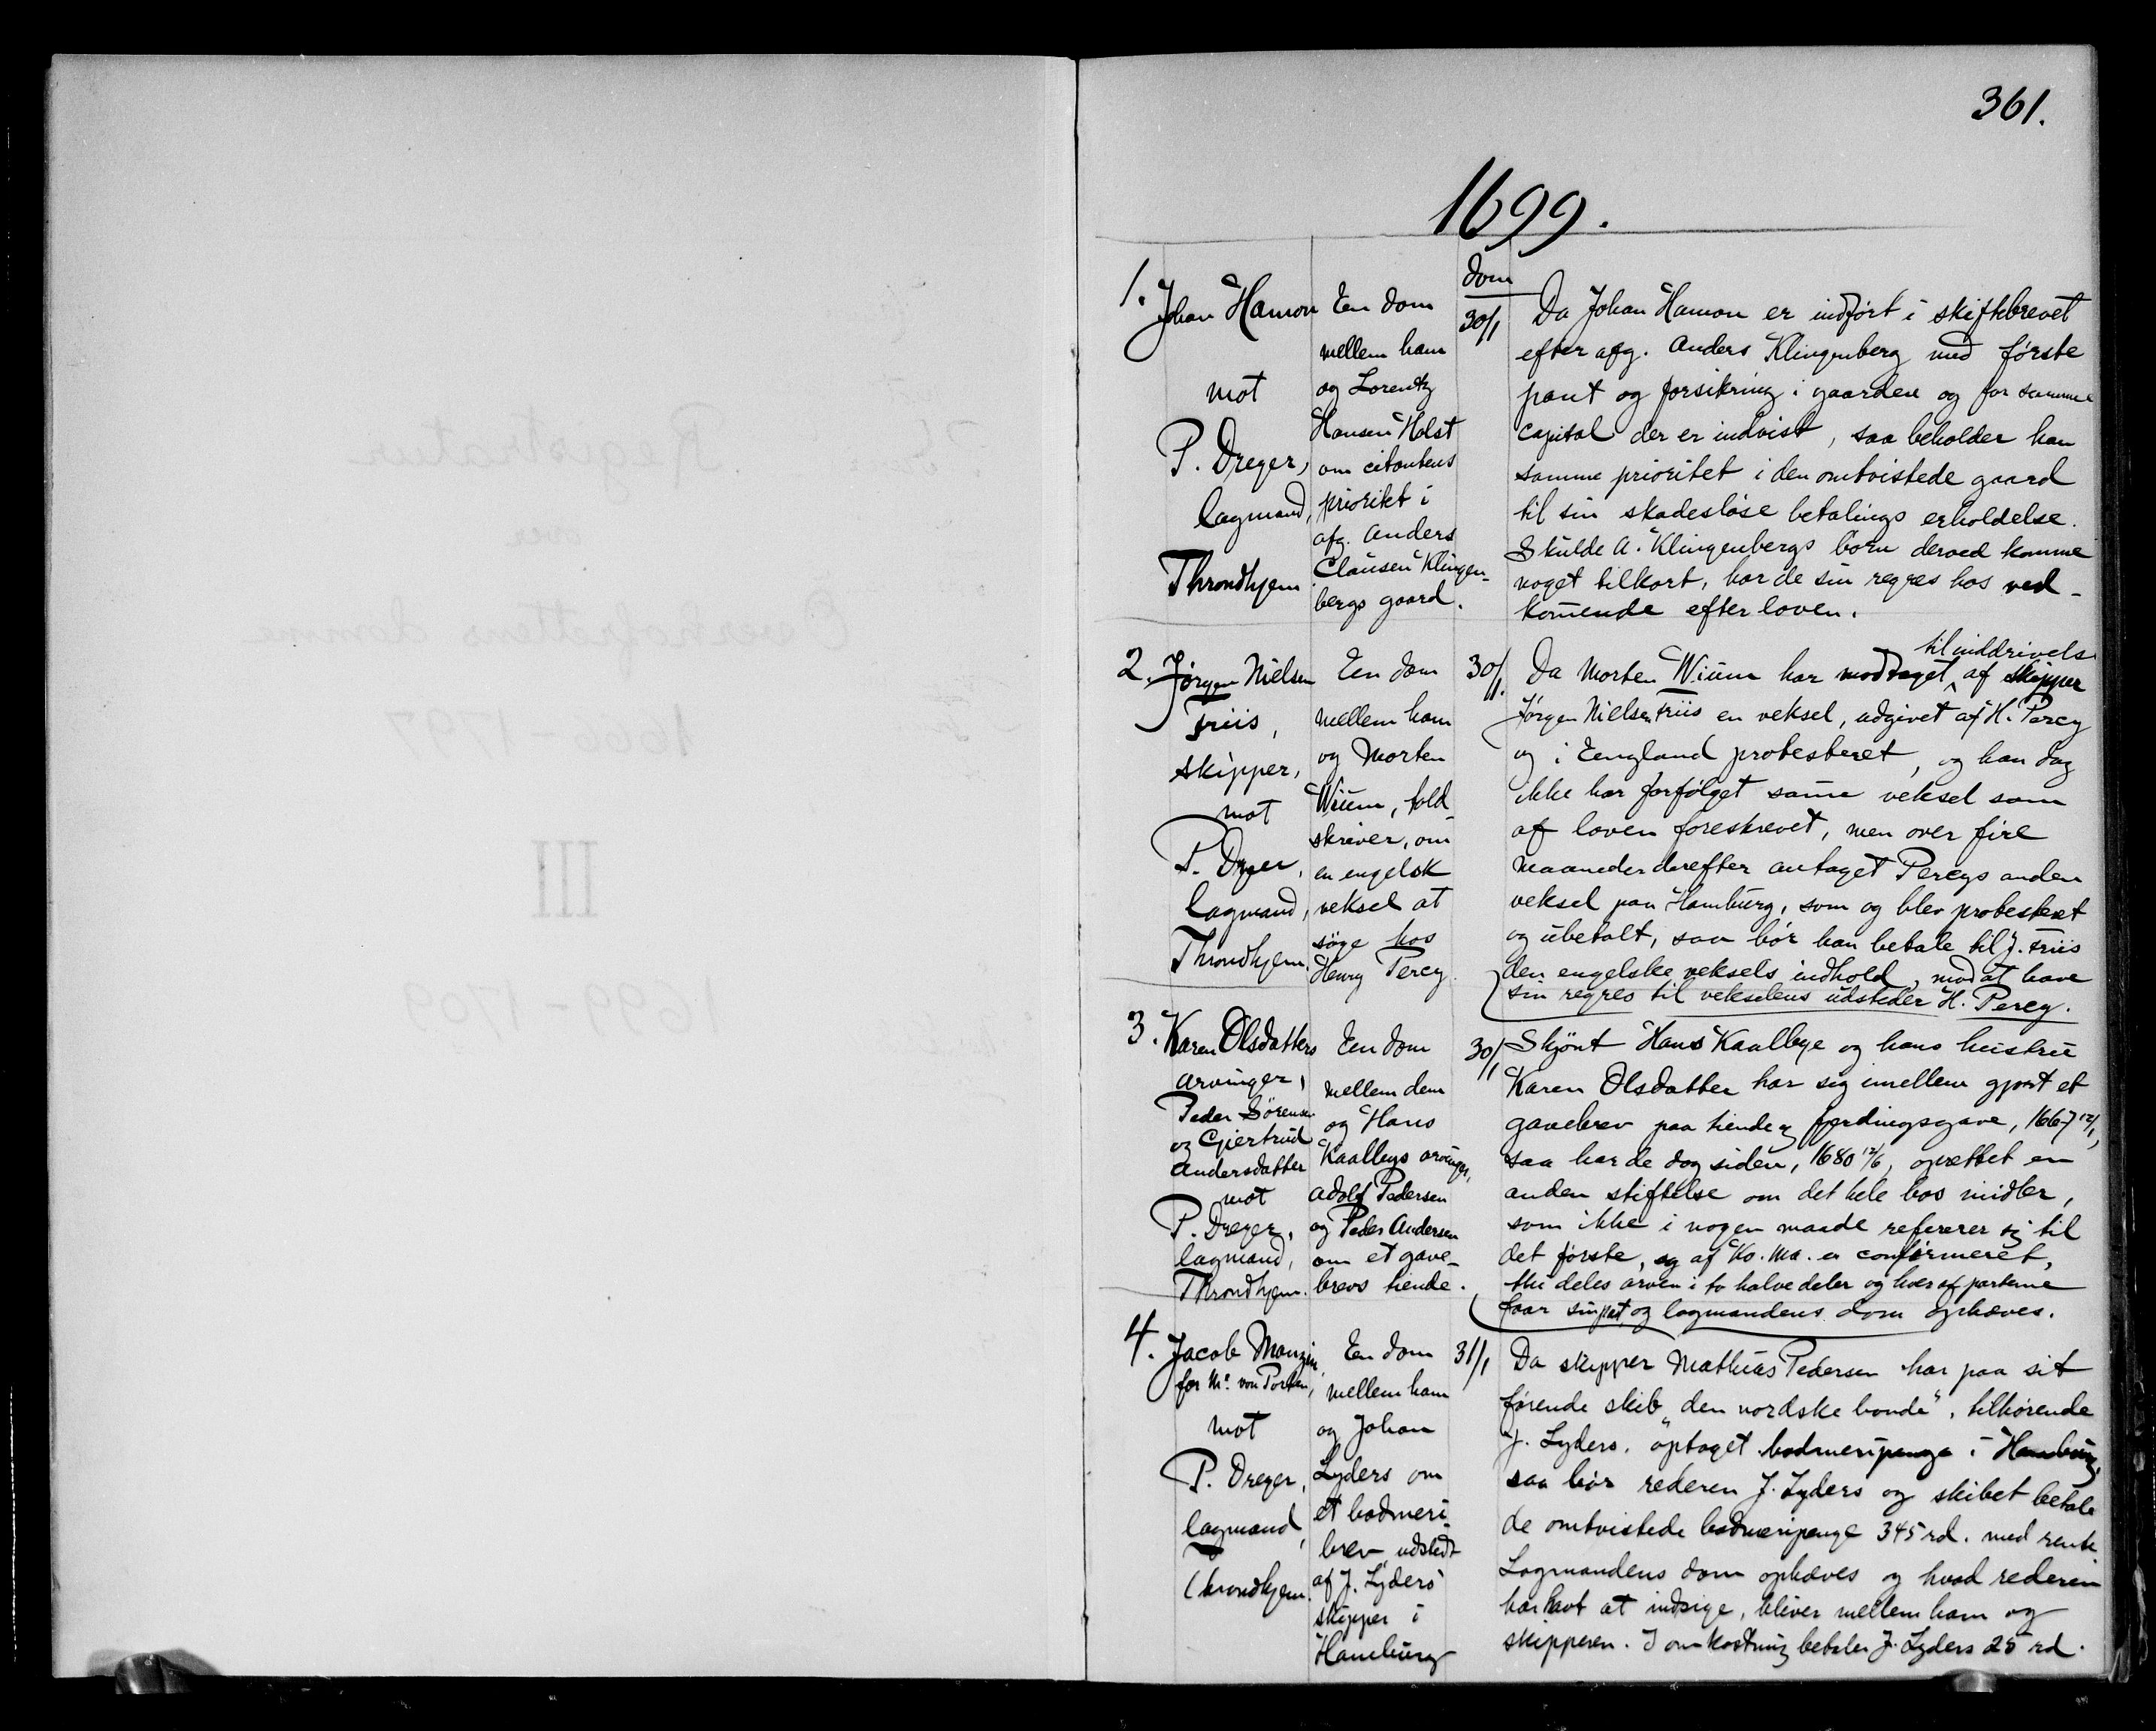 361.
1699.
dom
1. Johan Hamon
mot
P. Dreyer,
lagmand,
Throndhjem
En dom
mellem ham
og Lorentz
Hansen Holst
om citantens
prioritet i
afg. Anders
Clausen Klingen-
bergs gaard.
30/1
Da Johan Hamon er indført i skiftebrevet
efter afg. Anders Klingenberg med første
pant og forsikring i gaarden og for samme
capital der er indvist, saa beholder han
samme prioritet i den omtvistede gaard
til sin skadesløse betalings erholdelse.
Skulde A. Klingenbergs børn derved komme
noget tilkort, har de sin regres hos ved-
kom̄ende efter loven.
2. Jørgen Nielsen
Friis,
skipper,
mot
P. Dreyer,
lagmand,
Throndhjem.
En dom
mellem ham
og Morten
Wium, told
skriver, om
en engelsk
veksel at
søge hos
Henry Percy.
30/1.
til inddrivelse
Da Morten Wium har modtaget af skipper
Jørgen Nielsen Friis en veksel, udgivet af H. Percy
og i England protesteret, og han dog
ikke har forfølget sam̄e veksel som
af loven foreskrevet, men over fire
maaneder derefter antaget Percys anden
veksel paa Hamburg, som og blev protesteret
og ubetalt, saa bør han betale til J. Friis
den engelske veksels indhold, mod at have
sin regres til vekselens udsteder H. Percy.
3. Karen Olsdatters
arvinger,
Peder Sørensen
og Giertrud
Andersdatter
mot
P. Dreyer,
lagmand,
Throndhjem.
En dom
mellem dem
og Hans
Kaalbyes arvinger,
Adolf Pedersen
og Peder Andersen
om et gave-
brevs tiende.
30/1
Skjønt Hans Kaalbye og hans hustru
Karen Olsdatter har sig imellem gjort et
gavebrev paa tiende og fjerdingsgave, 1667 12/1,
saa har de dog siden, 1680 12/6, oprettet en
anden stiftelse om det hele bos midler,
som ikke i nogen maade refererer sig til
det første, og af Ko. Ma. er confirmeret,
thi deles arven i to halve deler og hver af parterne
faar sin part, og lagmandens dom ophæves.
4. Jacob Monzin,
for Mr. von Porten,
mot
P. Dreyer,
lagmand,
Throndhjem.
En dom
mellem ham
og Johan
Lyders om
et bodmeri-
brev, udstedt
af J. Lyders'
skipper i
Hamburg
31/1
Da skipper Mathias Pedersen har paa sit
førende skib „den nordske bonde“, tilhørende
J. Lyders, optaget bodmeripenge i Hamburg,
saa bør rederen J. Lyders og skibet betale
de omtvistede bodmeripenge 345 rd. med rente
Lagmandens dom ophæves og hvad rederen
har havt at indsige, bliver mellem ham og
skipperen. I omkostning betaler J. Lyders 25 rd.
Registratur
over
Overhofrettens domme
1666-1797
III
1699-1709